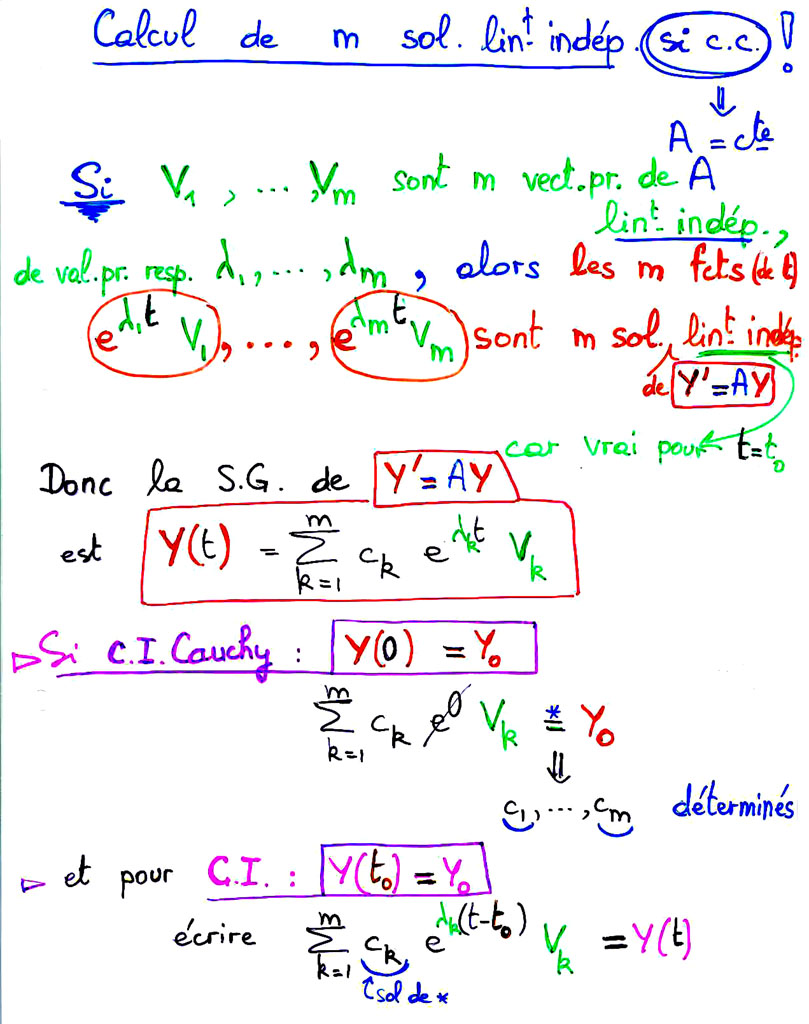 Calcul de m sol. linᵗ indép. si c.c. !
⇓
A = cte
Si V₁, ..., Vₘ sont m vect.pr. de A
linᵗ indép.,
de val.pr. resp. λ₁, ..., λₘ, alors les m fcts (de t)
e^{λ₁t} V₁, ..., e^{λₘt} Vₘ sont m sol. linᵗ indép.
de Y' = AY
car vrai pour t=t₀
Donc la S.G. de Y' = AY
est Y(t) = ∑_{k=1}^{m} cₖ e^{λₖt} Vₖ
▷ Si C.I. Cauchy : Y(0) = Y₀
∑_{k=1}^{m} cₖ e⁰ Vₖ =* Y₀
⇓
c₁, ..., cₘ déterminés
▷ et pour C.I. : Y(t₀) = Y₀
écrire ∑_{k=1}^{m} cₖ e^{λₖ(t-t₀)} Vₖ = Y(t)
↑ sol de *